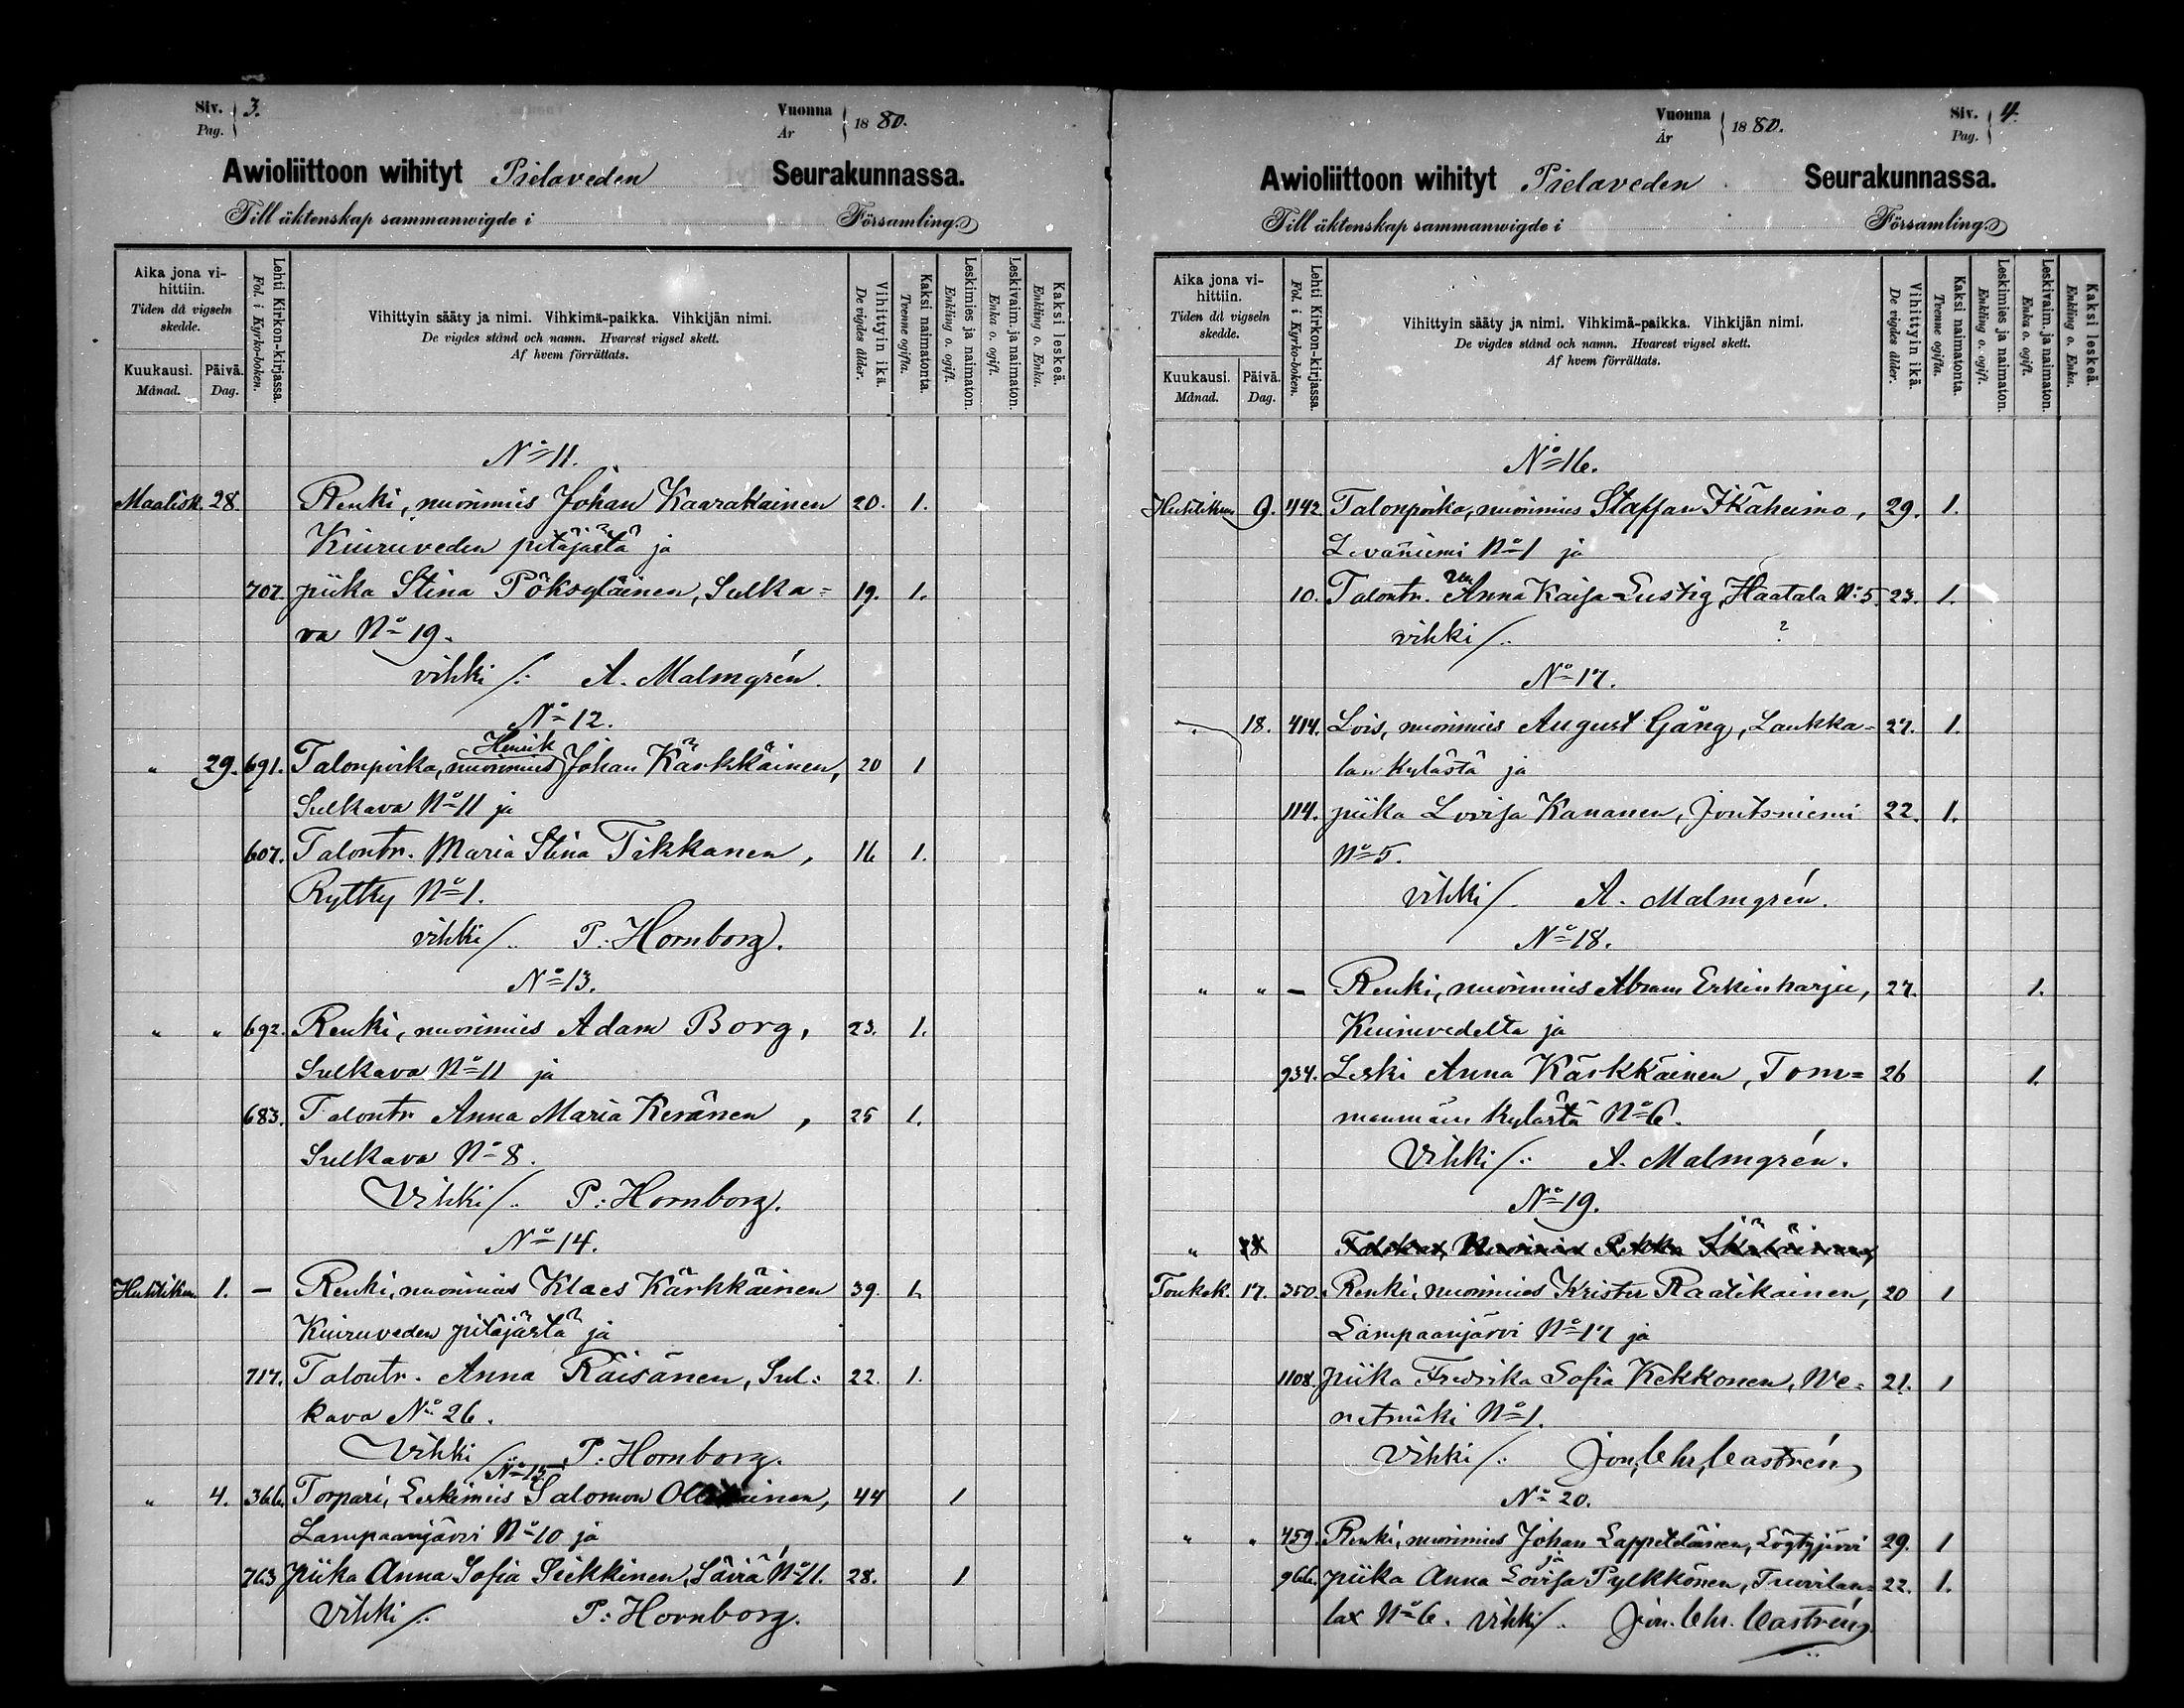 Siv. 3.
Pag.
Vuonna
År 1880.
Awioliittoon wihityt Pielaveden Seurakunnassa.
Till äktenskap sammanwigde i Församling.
Aika jona vihittiin.
Tiden då vigseln skedde.
Kuukausi. Månad.
Päivä. Dag.
Lehti Kirkon-kirjassa.
Fol. i Kyrko-boken.
Vihittyin sääty ja nimi. Vihkimä-paikka. Vihkijän nimi.
De vigdes stånd och namn. Hvarest vigsel skett.
Af hvem förrättats.
Vihittyin ikä.
De vigdes ålder.
Kaksi naimatonta.
Tvenne ogifta.
Leskimies ja naimaton.
Enkling o. ogift.
Leskivaim. ja naimaton.
Enka o. ogift.
Kaksi leskeä.
Enkling o. Enka.
No 11.
Maalisk. 28. Renki, nuorimies Johan Kaarakainen 20. 1.
Kiuruveden pitäjästä ja
707. piika Stina Pöksyläinen, Sulka= 19. 1.
va No 19.
vihki /: A. Malmgrén.
No 12.
Henrik
" 29. 691. Talonpoika, nuorimies Johan Kärkkäinen, 20 1
Sulkava No 11 ja
607. Talontr. Maria Stina Tikkanen, 16 1.
Rytky No 1.
vihki /: P: Hornborg.
No 13.
" " 692. Renki, nuorimies Adam Borg, 23. 1.
Sulkava No 11 ja
683. Talontr Anna Maria Keränen, 25 1.
Sulkava No 8.
Vihki /: P: Hornborg.
No 14.
Huhtikuu. 1. — Renki, nuorimies Klaes Kärkkäinen 39. 1.
Kiuruveden pitäjästä ja
717. Talontr. Anna Räisänen, Sul= 22. 1.
kava No 26.
Vihki /: P: Hornborg.
No 15
" 4. 366. Torpari, Leskimies Salomon 44 1
Lampaanjärvi No 10 ja
763 piika Anna Sofia Siekkinen, Säviä No 11. 28. 1
Vihki /: P: Hornborg.
Vuonna
År 1880.
Siv. 4.
Pag.
Awioliittoon wihityt Pielaveden Seurakunnassa.
Till äktenskap sammanwigde i Församling.
Aika jona vihittiin.
Tiden då vigseln skedde.
Kuukausi. Månad.
Päivä. Dag.
Lehti Kirkon-kirjassa.
Fol. i Kyrko-boken.
Vihittyin sääty ja nimi. Vihkimä-paikka. Vihkijän nimi.
De vigdes stånd och namn. Hvarest vigsel skett.
Af hvem förrättats.
Vihittyin ikä.
De vigdes ålder.
Kaksi naimatonta.
Tvenne ogifta.
Leskimies ja naimaton.
Enkling o. ogift.
Leskivaim. ja naimaton.
Enka o. ogift.
Kaksi leskeä.
Enkling o. Enka.
No 16.
Huhtikuu 9. 442 Talonpoika, nuorimies Staffan Ikäheimo, 29. 1.
Leväniemi No 1 ja
10. Talontr. Anna Kaisa Lustig, Haatala No 5. 23. 1.
vihki /: ?
No 17.
" 18. 414. Lois, nuorimies August Gång, Laukka= 27. 1.
lan kylästä ja
114. piika Lovisa Kananen, Joutsniemi 22. 1.
No 5.
Vihki /. A. Malmgrén.
No 18.
" " — Renki, nuorimies Abram Erkinharju, 27. 1.
Kiuruvedelta ja
934. Leski Anna Kärkkäinen, Tom= 26 1.
monmäen kylästä No 6.
Vihki /: A. Malmgrén.
No 19.
Toukok. 17. 350. Renki, nuorimies Krister Raatikainen, 20 1
Lampaanjärvi No 17 ja
1108. piika Fredrika Sofia Kekkonen, We= 21. 1
netmäki No 1.
Vihki /: Jon. Chr. Castrén
No 20.
" " 459. Renki, nuorimies Johan Lappeteläinen, 29. 1
ja
966. piika Anna Lovisa Pylkkönen, 22. 1.
lax No 6. Vihki /. Jon. Chr. Castrén.